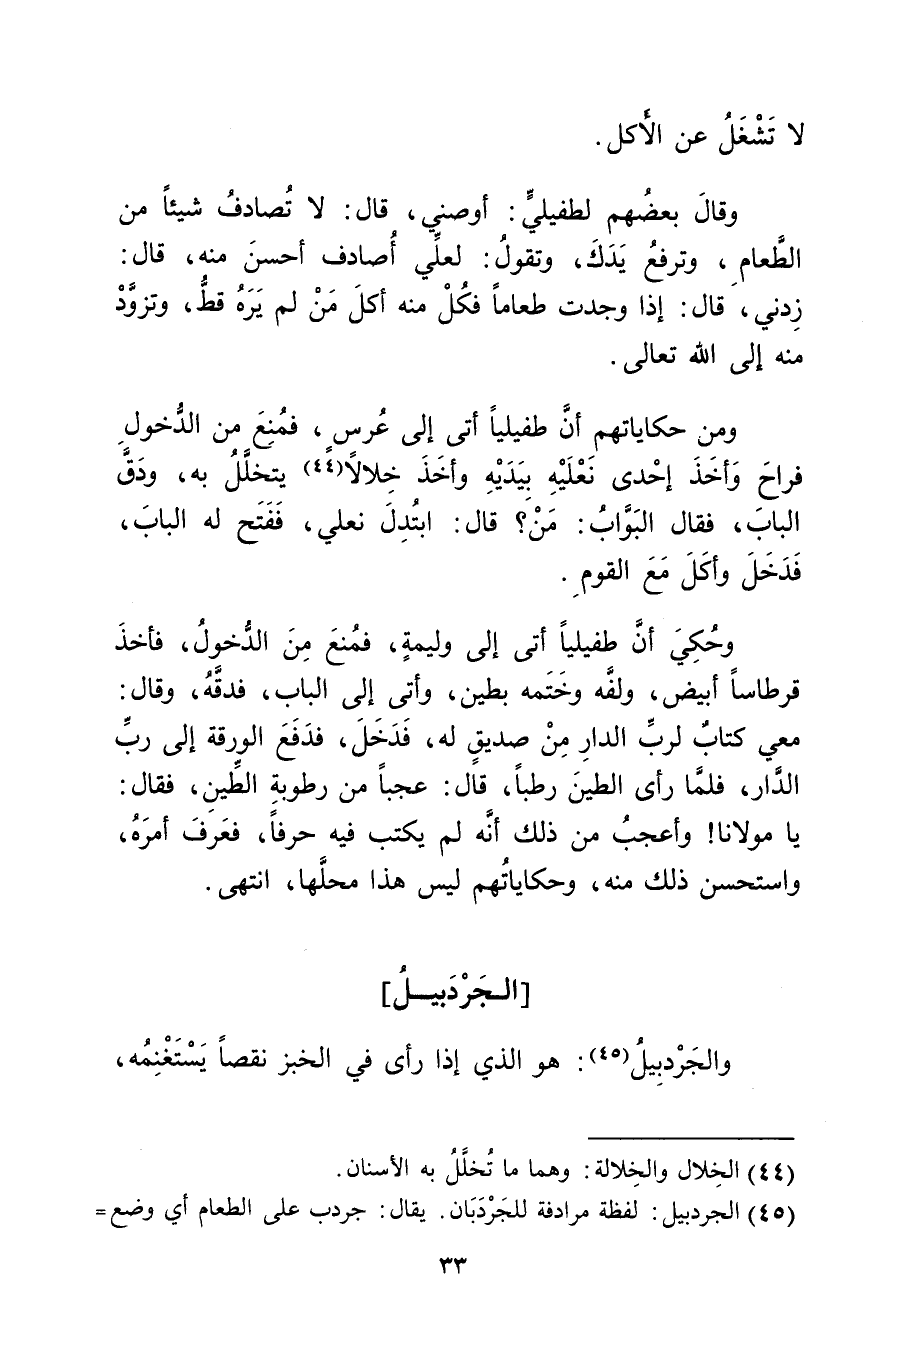 لا تَشْغَلُ عن الأَكل.
وقالَ بعضُهم لطفيليٍّ: أوصني، قال: لا تُصادفُ شيئاً من
الطَّعامِ، وترفعُ يَدَكَ، وتقولُ: لعلِّي أُصادف أحسنَ منه، قال:
زِدني، قال: إذا وجدت طعاماً فكُلْ منه أكلَ مَنْ لم يَرَهُ قطُّ، وتزوَّدْ
منه إلى الله تعالى.
ومن حكاياتهم أنَّ طفيلياً أتى إلى عُرسٍ، فمُنِعَ من الدُّخولِ
فراحَ وَأخَذَ إحْدى نَعْلَيْهِ بِيَدَيْهِ وأخَذَ خِلالًا(٤٤) يتخلَّلُ به، ودَقَّ
البابَ، فقال البَوَّابُ: مَنْ؟ قال: ابتُدِلَ نعلي، فَفَتَح له البابَ،
فَدَخَلَ وأكَلَ مَعَ القومِ.
وحُكِيَ أنَّ طفيلياً أتى إلى وليمةٍ، فمُنعَ مِنَ الدُّخولُ، فأخذَ
قرطاساً أبيض، ولفَّه وخَتَمه بطين، وأتى إلى الباب، فدقَّهُ، وقال:
معي كتابٌ لربِّ الدارِ مِنْ صديقٍ له، فَدَخَلَ، فدَفَعَ الورقة إلى ربِّ
الدَّار، فلمَّا رأى الطينَ رطباً، قال: عجباً من رطوبةِ الطِّين، فقال:
يا مولانا! وأعجبُ من ذلك أنَّه لم يكتب فيه حرفاً، فعَرفَ أمرَهُ،
واستحسن ذلك منه، وحكاياتُهم ليس هذا محلَّها، انتهى.
[الـجَرْدَبيـلُ]
والجَرْدبِيلُ(٤٥): هو الذي إذا رأى في الخبز نقصاً يَسْتَغْنِمُه،
(٤٤) الخِلال والخِلالة: وهما ما تُخلَّلُ به الأسنان.
(٤٥) الجردبيل: لفظة مرادفة للجَرْدَبَان. يقال: جردب على الطعام أي وضع=
٣٣